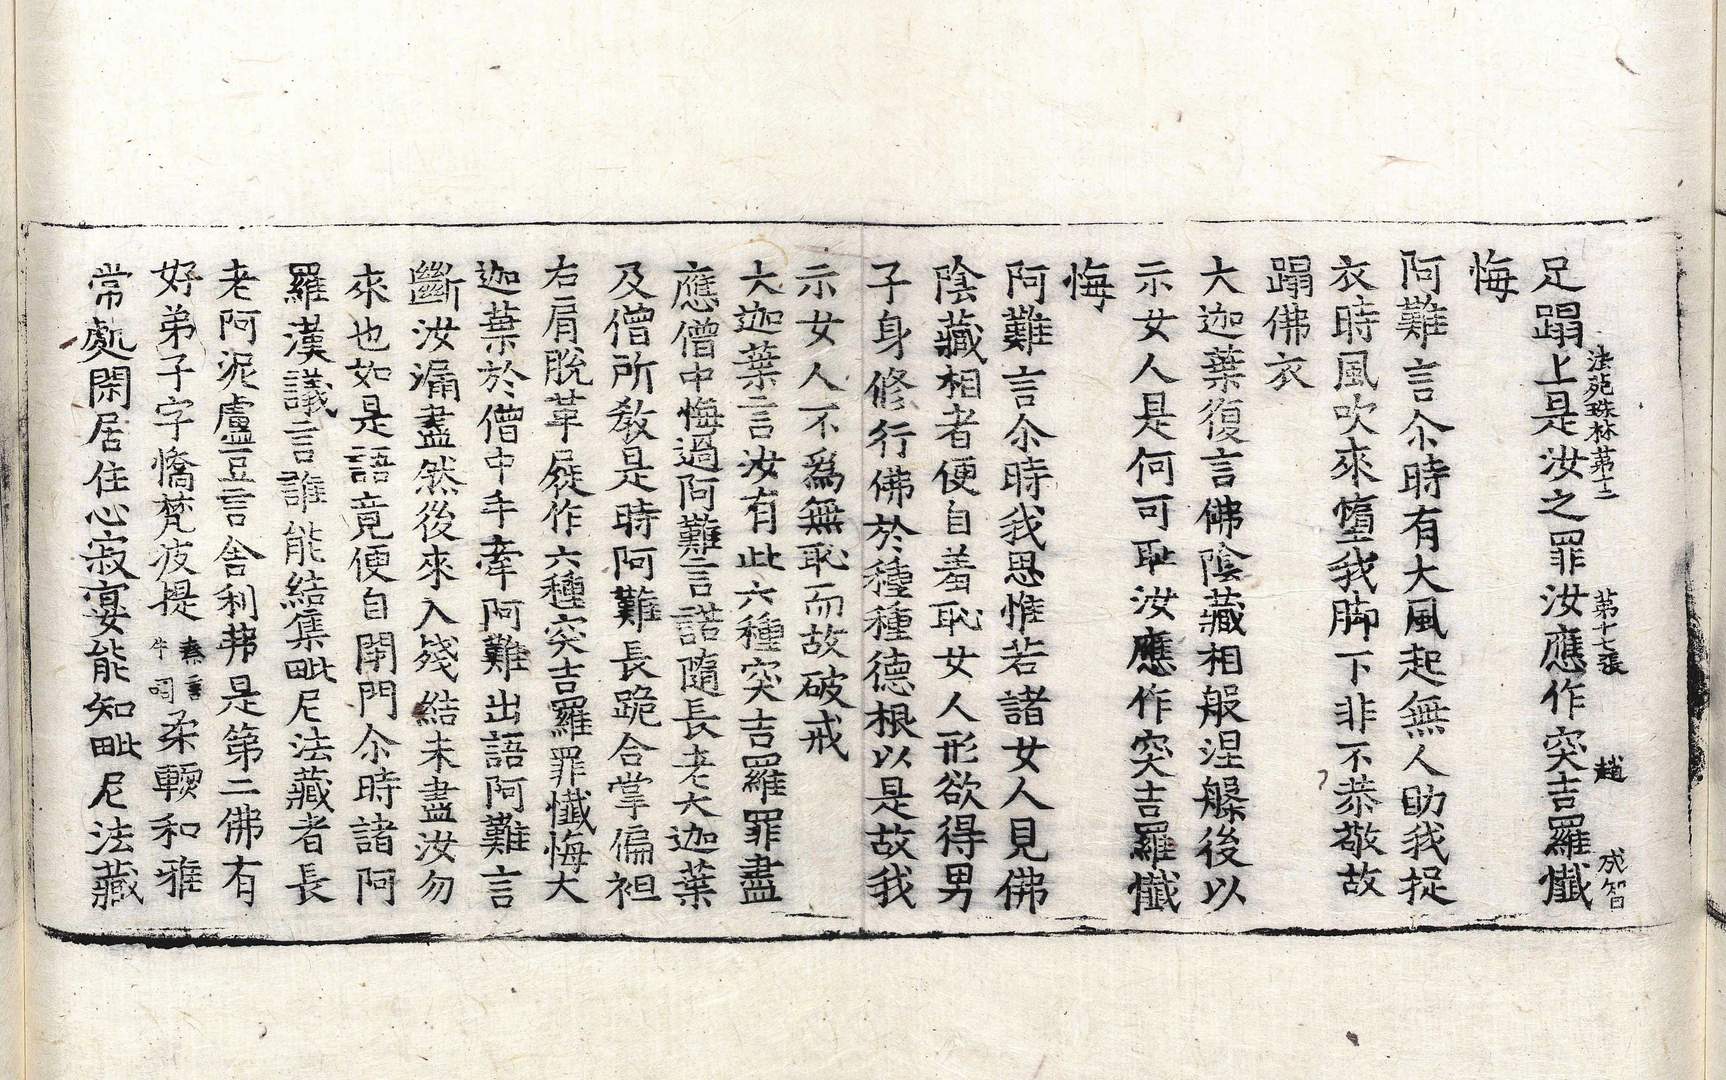 法苑珠林第十二 第十七張 趙 成智
足蹋上是汝之罪汝應作突吉羅懺
悔
阿難言尒時有大風起無人助我捉
衣時風吹來墮我脚下非不恭敬故
蹋佛衣
大迦葉復言佛陰藏相般涅槃後以
示女人是何可恥汝應作突吉羅懺
悔
阿難言尒時我思惟若諸女人見佛
陰藏相者便自羞恥女人形欲得男
子身修行佛於種種德根以是故我
示女人不爲無恥而故破戒
大迦葉言汝有此六種突吉羅罪盡
應僧中悔過阿難言諾隨長老大迦葉
及僧所教是時阿難長跪合掌偏袒
右肩脫革屣作六種突吉羅罪懺悔大
迦葉於僧中手牽阿難出語阿難言
斷汝漏盡然後來入殘結未盡汝勿
來也如是語竟便自閇門尒時諸阿
羅漢議言誰能結集毗尼法藏者長
老阿泥盧豆言舍利弗是第二佛有
好弟子字憍梵波提秦言牛呞柔輭和雅
常處閑居住心寂宴能知毗尼法藏